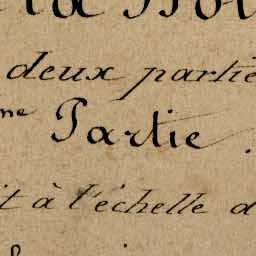 deux partie
me Partie.
it à l'échelle d